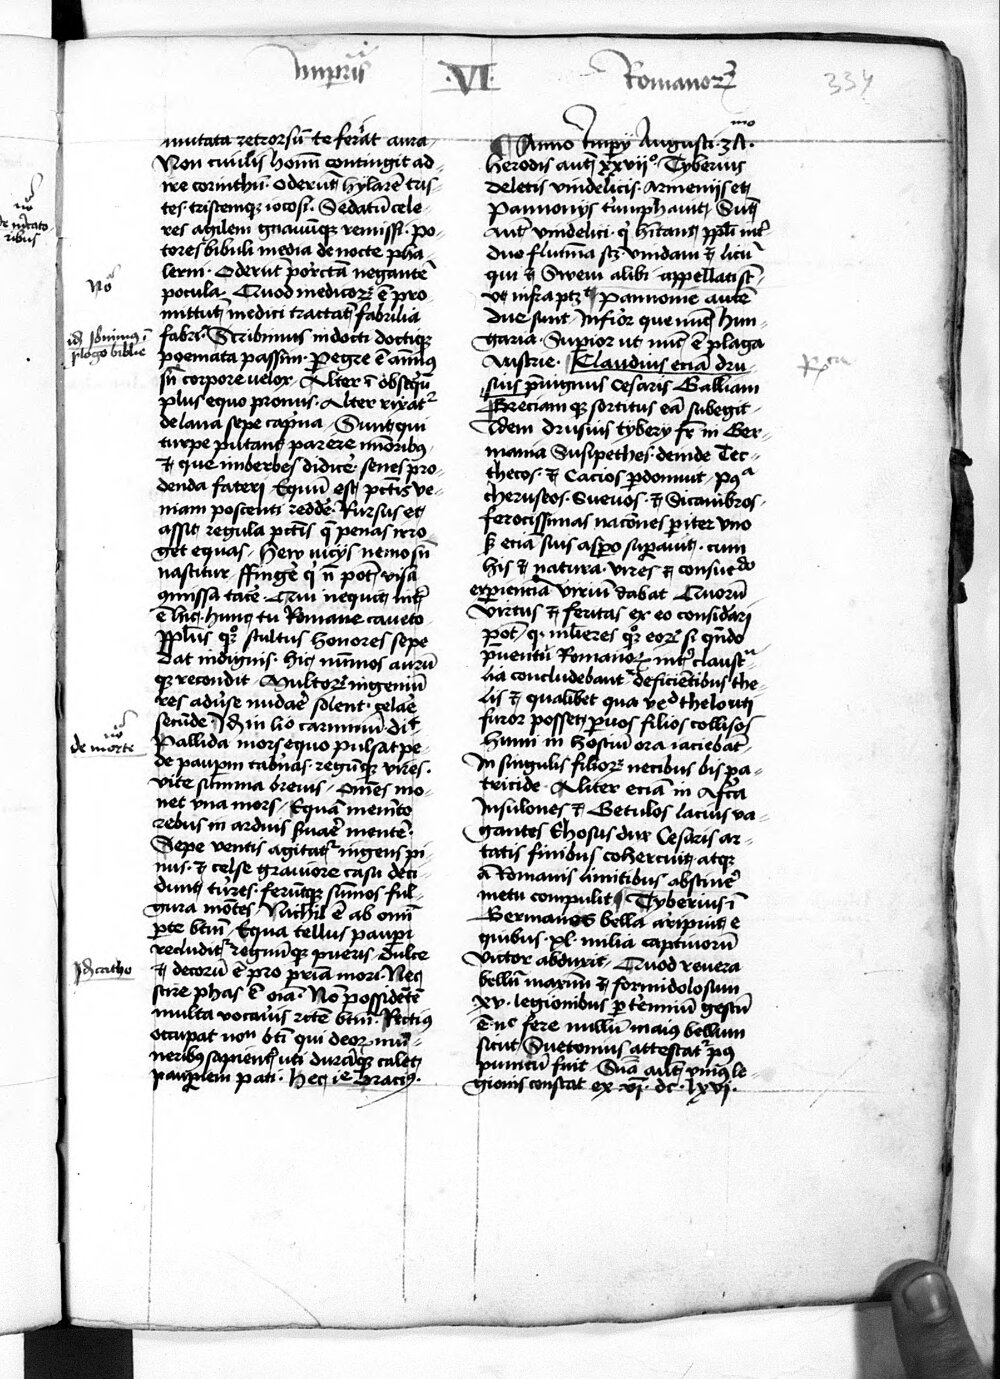 Impris
.VI.
Romanorꝝ
334
mutata retrorsū te ferāt aura
Non cuilis homī contingit ad-
ire corinthū. Oderūt hylarē tris-
tes. tristemqꝫ iocosi. Sedatū cele-
res agilem gnauūqꝫ remissi. po-
tores bibuli media de nocte pha-
lerni. Oderūt porrectā negantē
pocula. Quod medicorꝝ ē pro-
mittūt medici tractāt fabrilia
fabri. Scribimus indocti doctiqꝫ
poemata passim. Pegre ē animꝰ
sn̄ corpore velox. Alter ī obseqūm
plus equo pronus. Alter rixatʳ
de lana sepe capina. Sunt qui
turpe putant parere minoribꝰ
⁊ que imberbes didicē senes pro-
denda fateri. Equū est pctīs ve-
niam poscenti redde. Rursus et
assit regula pctīs q̄ penas irro-
get equas. Hew vicijs nemo sn̄
nascitur. Ffingē qͥ n̄ potest visa
9missa tacē. Qui nequit
ē hic. hunc tu Romane caueto
pplūs qꝫ stultus honores sepe
dat indignis. hic nūmos aurū
qꝫ recondit. Multorꝝ ingeniū
res aduse nudare solent. celare
secūde. Idē in lio carminū dīt
Pallida mors equo pulsat pe-
de paupm tabnas. regūqꝫ turres.
vite summa breuis. Omēs mo-
net vna mors. Equā memēto
rebus in arduis seruare mentē.
Sepe ventis agitatʳ ingens pi-
nus. ⁊ celse grauiore casu deci-
dunt turres. feriūtqꝫ sūmos ful-
gura mōtes. Nichil ē ab omī
pte btm̄. Equa tellus paupi
recluditʳ regūqꝫ pueris. Dulce
⁊ decorū ē pro patria mori. Nec
scire phas ē oīa. Nō possidētē
multa vocauis rctē btm̄. Rectius
occupat nomē btī qui deorꝝ mu-
neribꝰ sapientʳ uti duramqꝫ callet
paupiem pati. hec ille Oracius.
Anno Impij Augusti. 3A. mo
herodis aut xxvijº. Tyberius
deletis vindelicis. Armenijs et
Pannonijs triumphauit. Sunt
aut vindelici. qͥ hitant ppli int
duo flumina scꝫ vindam ⁊ licū
qui ⁊ Sweui alibi appellati sunt
vt infra ptꝫ. Pannonie autē
due sunt. Inferior que nūc hun-
garia. Superior ut nūc ē plaga
Austrie. Claudius eciā dru-
sius priuignus Cesaris Galliam
Greciamqꝫ sortitus eā subegit.
Idem drusius tybery fr in Ger-
mania Susipethes. deinde Tec-
thecos. ⁊ Cacios pdomuit. pꝰᵃ
cheruscos. Sueuos. ⁊ Sicambros.
ferocissimas nacōnes piter vno
⁊ eciā suis aspo superauit. cum
his ⁊ natura. vires ⁊ consuetᵈᵒ
experienciā viriū dabat. Quorū
virtus ⁊ feritas ex eo considari
potest. qꝫ mlieres qꝫ eorꝝ si qn̄do
puentū Romanorꝝ int claustᵃ
lia concludebantʳ deficiētibus the-
lis ⁊ qualibet qua vʳ thelo uti
furor posset. puos filios collisos
humi in hostiū ora iaciebāt
In singulis filiorꝝ necibus bis pa-
tricide. Aliter eciā in Affrica
Insulones ⁊ Getulos lacius va-
gantes Chosus dux Cesaris ar-
tatis finibus cohercuit. atqꝫ
a Romanis limitibus abstinere
metu compulit. Tyberius ī
Germanos bella aripuit e
quibus. xl. milia captiuorū
victor abduxit. Quod reuera
bellū maximū ⁊ formidolosum
xv. legionibus p tēnium gestū
ē. nᶜ fere nullum maius bellum
sicut Suetonius attestatʳ pꝰ
punicū fuit. Sūa aut vniꝰ le-
gionis constat ex vī. dc. lxvi.
no
de mercato
ribus
No
id Ieronimus ī
plogo biblie
no
de morte
Id catho